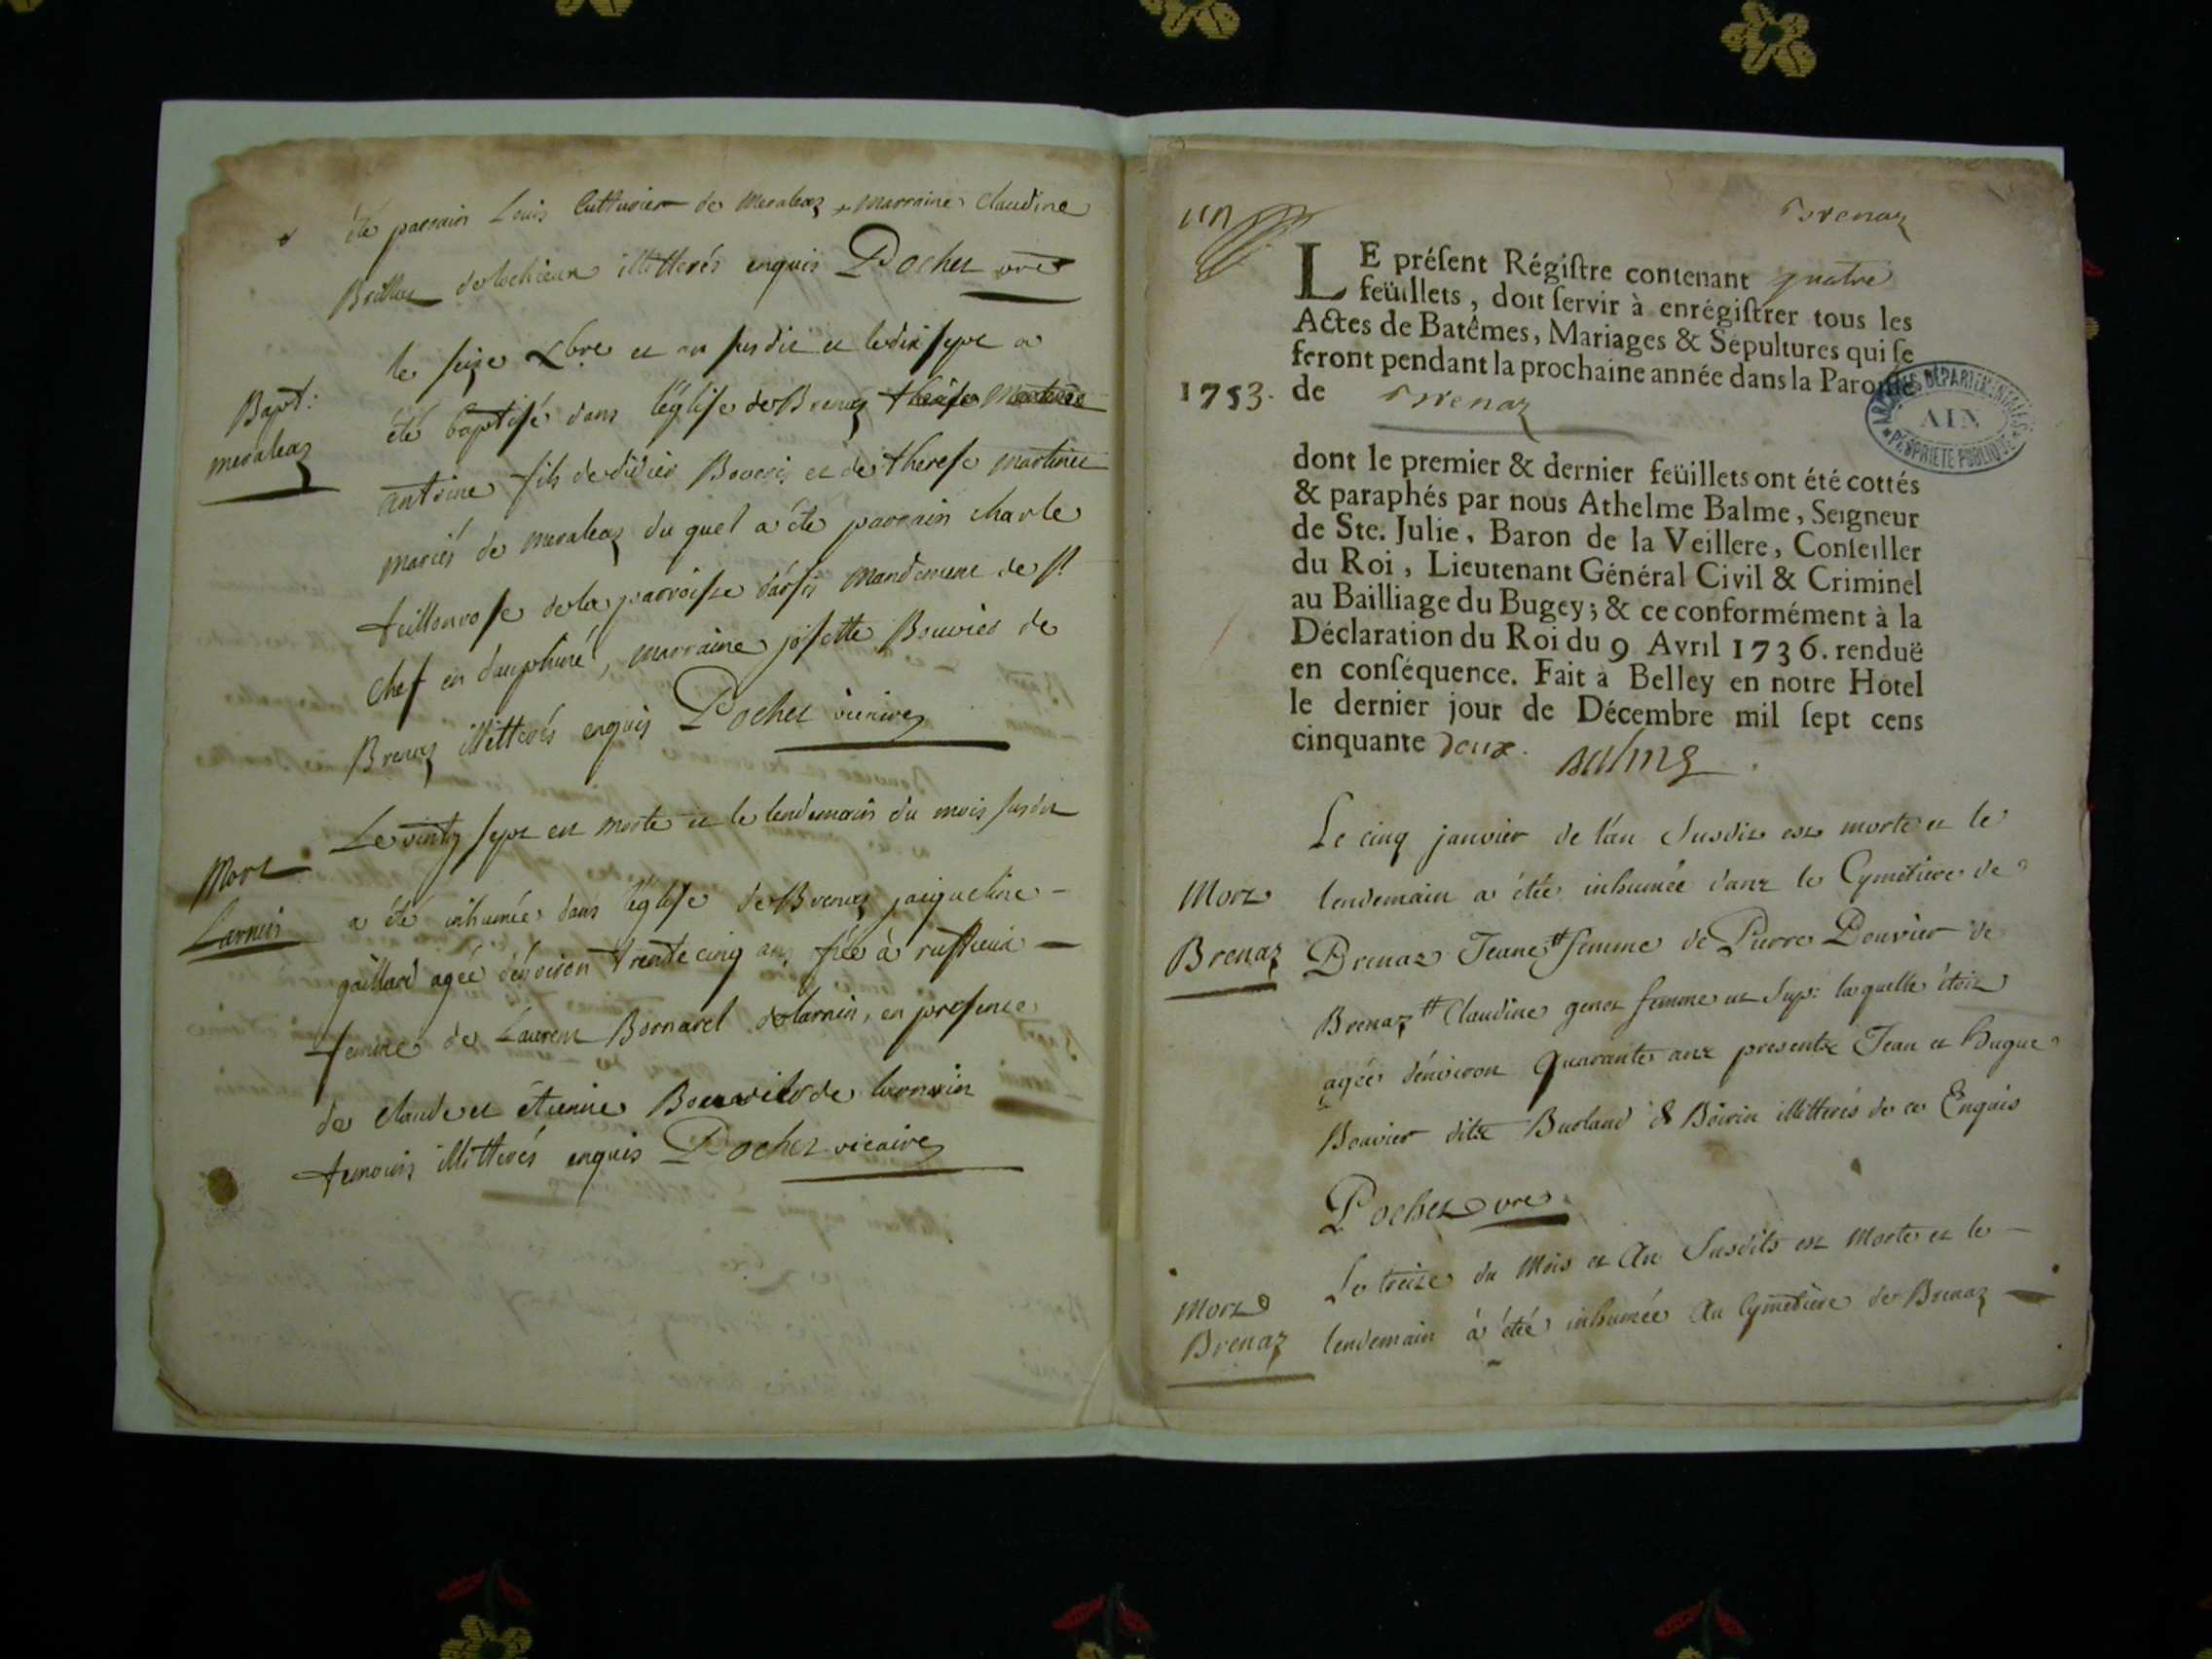 été parrain Louis Cutturier de meraleaz, marraine Claudine
Brillaz de lochieux illitterés enquis Pochet vre
Bapt:
meraleaz
le seize Xbre et an susdit et le dix sept a
été baptisé dans l'église de Brenaz therese Martinet
antoine fils de didier Boveris et de therese martinet
mariés de meraleaz du quel a été parrain charle
de la parroisse d'arsis mandement de st
chef en dauphiné, marraine josette Bouvier de
Brenaz illitterés enquis Pochet vicaire
Mort
Larnin
Le vintg sept est morte et le lendemain du mois susdit
a été inhumée dans l'église de Brenaz jaiqueline
gaillard agée d'environ trente cinq ans née à ruffieux
femme de Laurent Bornarel de larnin, en presence
de claude et étienne de larnin
temoins illitterés enquis Pochet vicaire
un
Brenaz
LE présent Régistre contenant quatre
feüillets, doit servir à enrégistrer tous les
Actes de Batêmes, Mariages & Sépultures qui se
feront pendant la prochaine année dans la Paroisse
1753. de Brenaz
ARCHIVES DÉPARTEMENTALES
AIN
PROPRIÉTÉ PUBLIQUE
dont le premier & dernier feüillets ont été cottés
& paraphés par nous Athelme Balme, Seigneur
de Ste. Julie, Baron de la Veillere, Conseiller
du Roi, Lieutenant Général Civil & Criminel
au Bailliage du Bugey; & ce conformément à la
Déclaration du Roi du 9 Avril 1736. renduë
en conséquence. Fait à Belley en notre Hôtel
le dernier jour de Décembre mil sept cens
cinquante deux. Balme
Mort
Brenaz
Le cinq janvier de l'an susdit est morte et le
lendemain a étée inhumée dans le Cymétiere de
Brenaz Jeane # femme de Pierre Bouvier de
Brenaz # Claudine genet femme ut sup: laquelle étoit
agée d'environ quarante ans presents Jean et hugue
Bouvier dits Burland & Boirin illitterés de ce Enquis
Pochet vre
Mort
Brenaz
Le treize du mois et An susdits est Morte et le
lendemain à étée inhumée Au Cymetiere de Brenaz